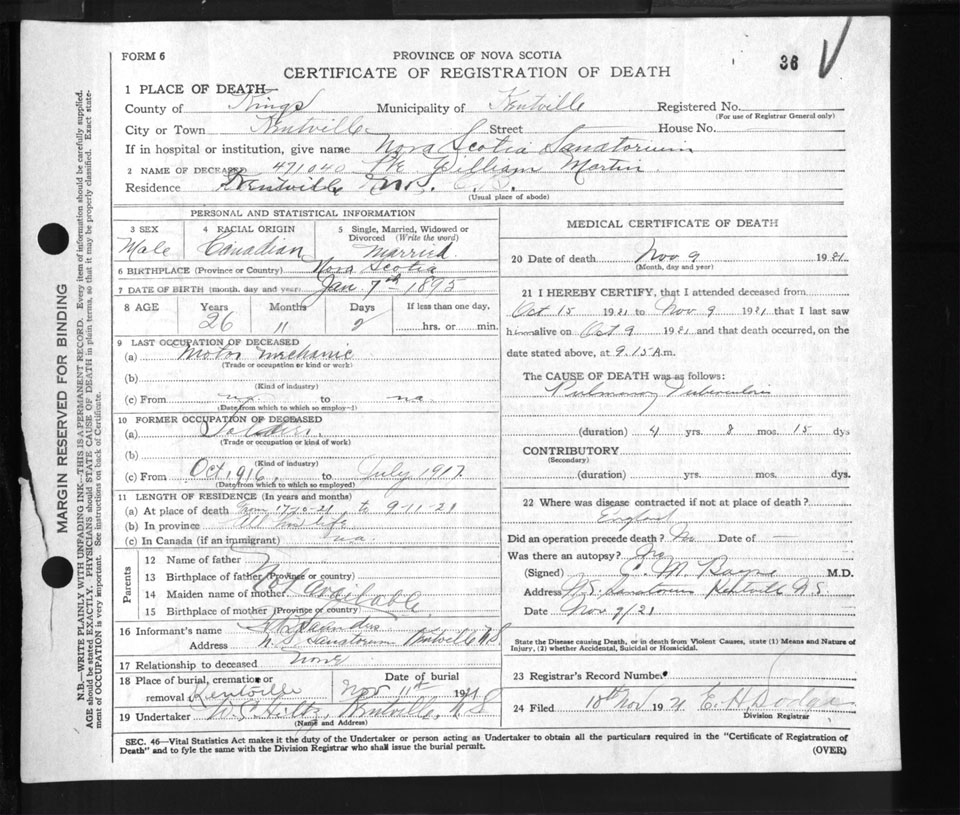 FORM 6
PROVINCE OF NOVA SCOTIA
CERTIFICATE OF REGISTRATION OF DEATH
36
1 PLACE OF DEATH
County of Kings Municipality of Kentville Registered No.
(For use of Registrar General only)
City or Town Kentville Street House No.
If in hospital or institution, give name Nova Scotia Sanatorium
2 NAME OF DECEASED 471040 Pte William Martin
Residence Kentville
(Usual place of abode)
PERSONAL AND STATISTICAL INFORMATION
3 SEX Male
4 RACIAL ORIGIN Canadian
5 Single, Married, Widowed or Divorced (Write the word) Married
6 BIRTHPLACE (Province or Country) Nova Scotia
7 DATE OF BIRTH (month, day and year) Jan. 7th 1895
8 AGE Years Months Days If less than one day,
26 11 2 hrs. or min.
9 LAST OCCUPATION OF DECEASED
(a) Motor mechanic
(Trade or occupation or kind or work)
(b)
(Kind of industry)
(c) From na to na
(Date from which to which so employ--)
10 FORMER OCCUPATION OF DECEASED
(a) Soldier
(Trade or occupation or kind of work)
(b)
(Kind of industry)
(c) From Oct 1916 July 1917
(Date from which to which so employed)
11 LENGTH OF RESIDENCE (In years and months)
(a) At place of death From to 9-11-21
(b) In province All his life
(c) In Canada (if an immigrant) n.a.
Parents
12 Name of father
13 Birthplace of father (Province or country)
14 Maiden name of mother
15 Birthplace of mother (Province or country)
Not Available
16 Informant's name Saunders
Address N.S. Sanatorium Kentville NS
17 Relationship to deceased None
18 Place of burial, cremation or removal Kentville
Date of burial Nov 11th 1921
19 Undertaker Kentville, NS
(Name and Address)
MEDICAL CERTIFICATE OF DEATH
20 Date of death Nov 9 1921
(Month, day and year)
21 I HEREBY CERTIFY, that I attended deceased from
Oct 15 1921 to Nov 9 1921 that I last saw
him alive on Oct 9 1921 and that death occurred, on the
date stated above, at 9.15 A.m.
The CAUSE OF DEATH was as follows:
Pulmonary Tuberculosis
(duration) 4 yrs. 8 mos. 15 dys
CONTRIBUTORY
(Secondary)
(duration) yrs. mos. dys.
22 Where was disease contracted if not at place of death?
England
Did an operation precede death? No Date of —
Was there an autopsy? No
(Signed) M.D.
Address N.S. Sanatorium Kentville N.S.
Date Nov 9/21
State the Disease causing Death, or in death from Violent Causes, state (1) Means and Nature of
Injury, (2) whether Accidental, Suicidal or Homicidal.
23 Registrar's Record Number
24 Filed 10th Nov 1921 E. H. Dodge
Division Registrar
SEC. 46—Vital Statistics Act makes it the duty of the Undertaker or person acting as Undertaker to obtain all the particulars required in the "Certificate of Registration of
Death" and to fyle the same with the Division Registrar who shall issue the burial permit.
(OVER)
MARGIN RESERVED FOR BINDING
N.B.—WRITE PLAINLY WITH UNFADING INK—THIS IS A PERMANENT RECORD. Every item of information should be carefully supplied.
AGE should be stated EXACTLY. PHYSICIANS should STATE CAUSE OF DEATH in plain terms, so that it may be properly classified. Exact state-
ment of OCCUPATION is very important. See instructions on back of Certificate.